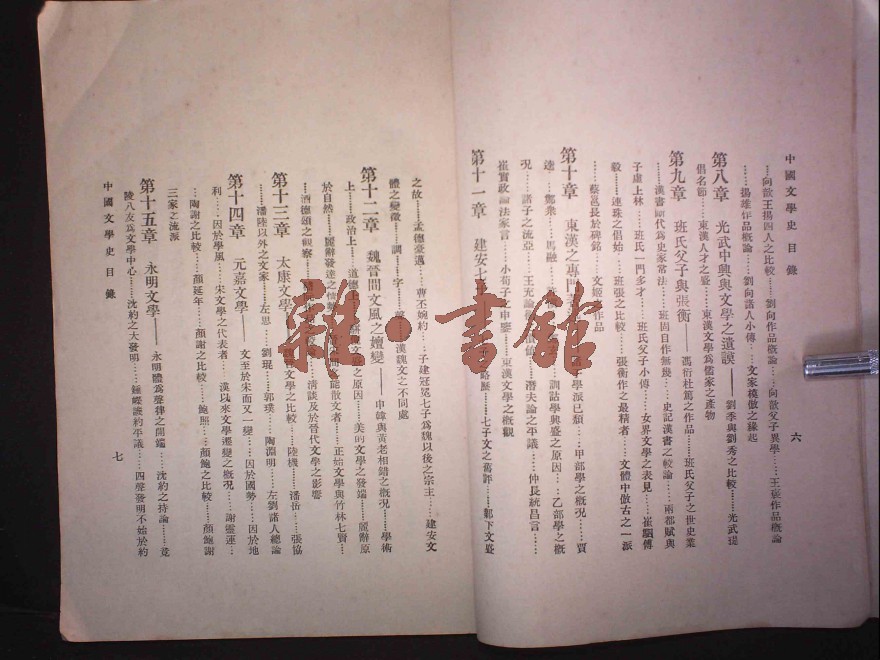 中國文學史目錄
六
……向歆王揚四人之比較……劉向作品概論……向歆父子異學……王褒作品概論
……揚雄作品概論……劉向諸人小傳……文家模倣之緣起
第八章 光武中興與文學之遺謨——劉季與劉秀之比較……光武提
倡名節……東漢人才之盛……東漢文學爲儒家之產物
第九章 班氏父子與張衡——馮衍杜篤之作品……班氏父子之世史業
……漢書斷代爲史家常法……班固自作無幾……史記漢書之較論……兩都賦與
子虛上林……班氏一門多才……班氏父子小傳……女界文學之表見……崔駰傅
毅……連珠之倡始……班張之比較……張衡作之最精者……文體中倣古之一派
……蔡邕長於碑銘……文姬 作品
第十章 東漢之專門 學派已頹……甲部學之概況……賈
逵……鄭衆……馬融 訓詁學興盛之原因……乙部學之概
況……諸子之流亞……王充論衡 潛夫論之平議……仲長統昌言……
崔寔政論法家言……小荀子之申鑒 東漢文學之概觀
第十一章 建安七 略歷……七子文之舊評……鄴下文宴
之故……孟德豪邁……曹丕婉約……子建冠冕七子爲魏以後之宗主……建安文
體之變徵……調……字 漢魏文之不同處
第十二章 魏晉間文風之嬗變——申韓與黃老相錯之概況……學術
上……政治上……道德上 之原因……美的文學之發端……麗辭原
於自然……麗辭發達之 能散文者……正始文學與竹林七賢……
……酒德頌之觀察 清談及於晉代文學之影響
第十三章 太康文學 文學之比較……陸機……潘岳……張協
……潘陸以外之文家……左思……劉琨……郭璞……陶淵明……左劉諸人總論
第十四章 元嘉文學——文至於宋而又一變……因於國勢……因於地
利……因於學風……宋文學之代表者……漢以來文學遷變之概況……謝靈運……
……陶謝之比較……顏延年……顏謝之比較……鮑照……顏鮑之比較……顏鮑謝
三家之流派
第十五章 永明文學——永明體爲聲律之開端……沈約之持論……竟
陵八友爲文學中心……沈約之大發明……鍾嶸譏約平議……四聲發明不始於約
中國文學史目錄
七
雜·書館